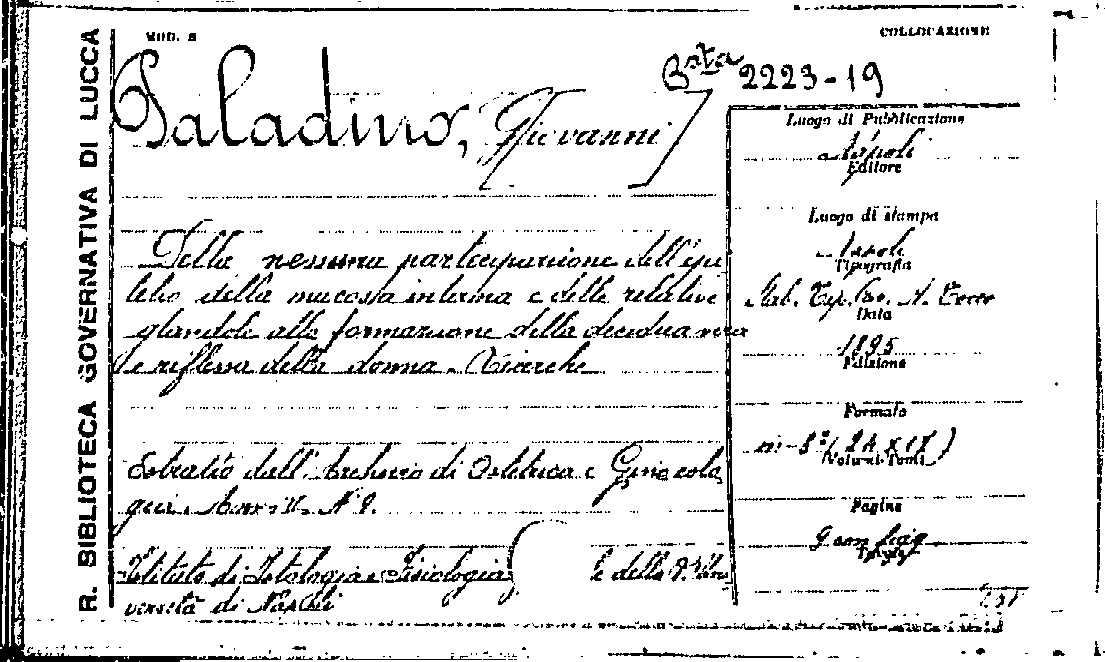 R. BIBLIOTECA GOVERNATIVA DI LUCCA
MOD. B
COLLOCAZIONE
Bsta 2223-19
Paladino, Giovanni
Della nessuna partecipazione dell'epi
telio della mucosa interina e delle relative
glandole alla formazione della decidua vera
e riflessa della donna. Ricerche
Estratto dall'Archivio di Ostetricia e Ginecolo
gia. Anno II. N.
Istituto di Istologia e Fisiologia e della R. Uni
versità di Napoli
Luogo di Pubblicazione
Napoli
Editore
Luogo di stampa
Napoli
Tipografia
Stab. Tip. A.
Data
1895
Edizione
Formato
in-8° (24 x 17)
Volumi-Tomi
Pagine
9 con fig